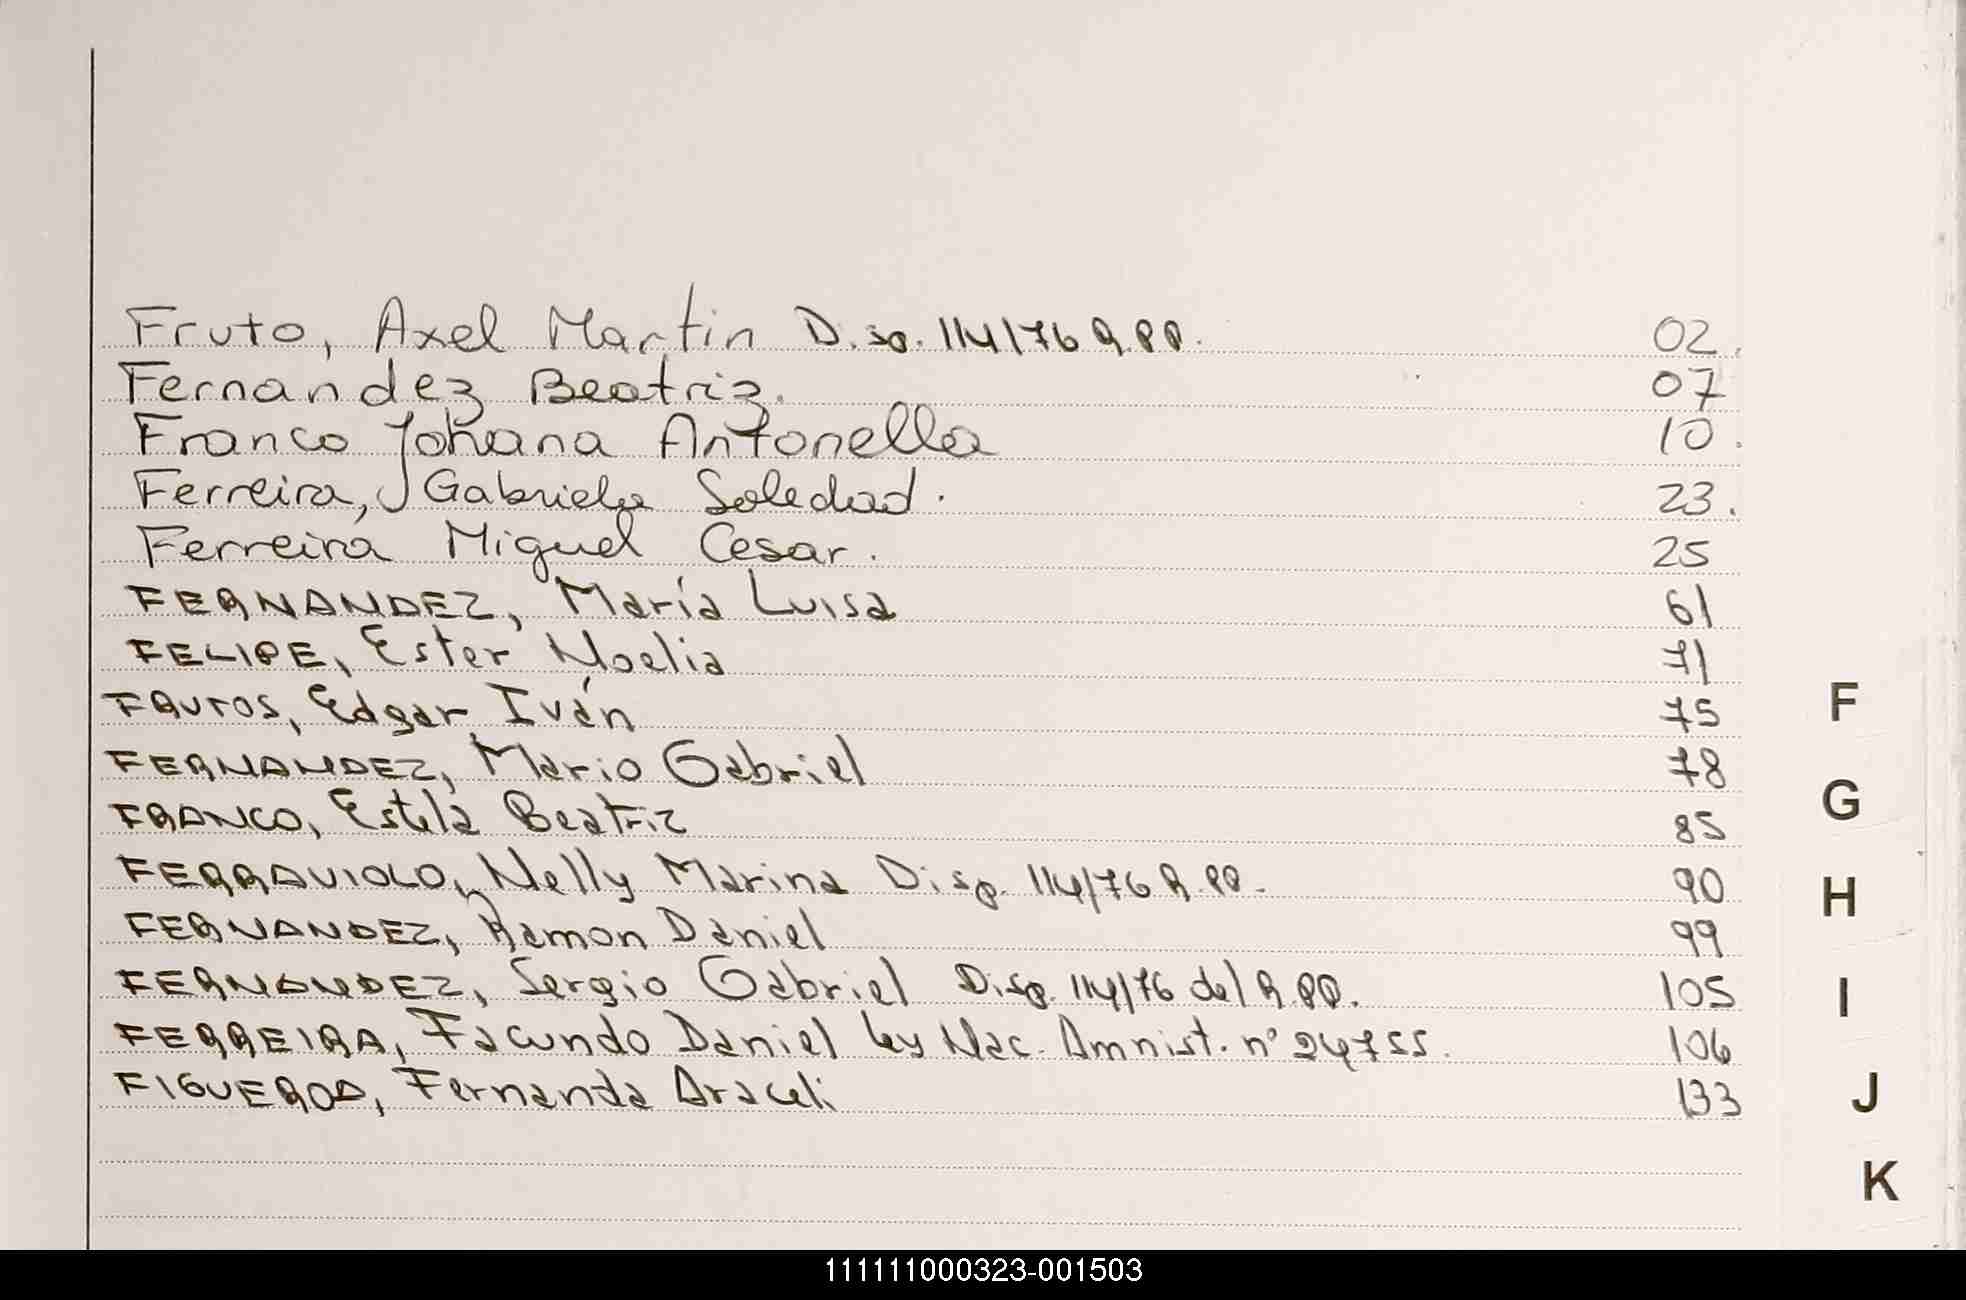 Fruto, Axel Martin Disp. 114/76 R.PP. 02.
Fernandez Beatriz. 07
Franco Johana Antonella 10.
Ferreira, Gabriela Soledad. 23.
Ferreira Miguel Cesar. 25
FERNANDEZ, María Luisa 61
FELIPE, Ester Noelia 71
FRUTOS, Edgar Iván 75
FERNANDEZ, Mario Gabriel 78
FRANCO, Estela Beatriz 85
FERRAUIOLO, Nelly Marina Disp. 114/76 R.PP. 90
FERNANDEZ, Ramon Daniel 99
FERNANDEZ, Sergio Gabriel Disp. 114/76 del R.PP. 105
FERREIRA, Facundo Daniel ley Nac. Amnist. n° 24755. 106
FIGUEROA, Fernanda Araceli 133
F
G
H
I
J
K
111111000323-001503